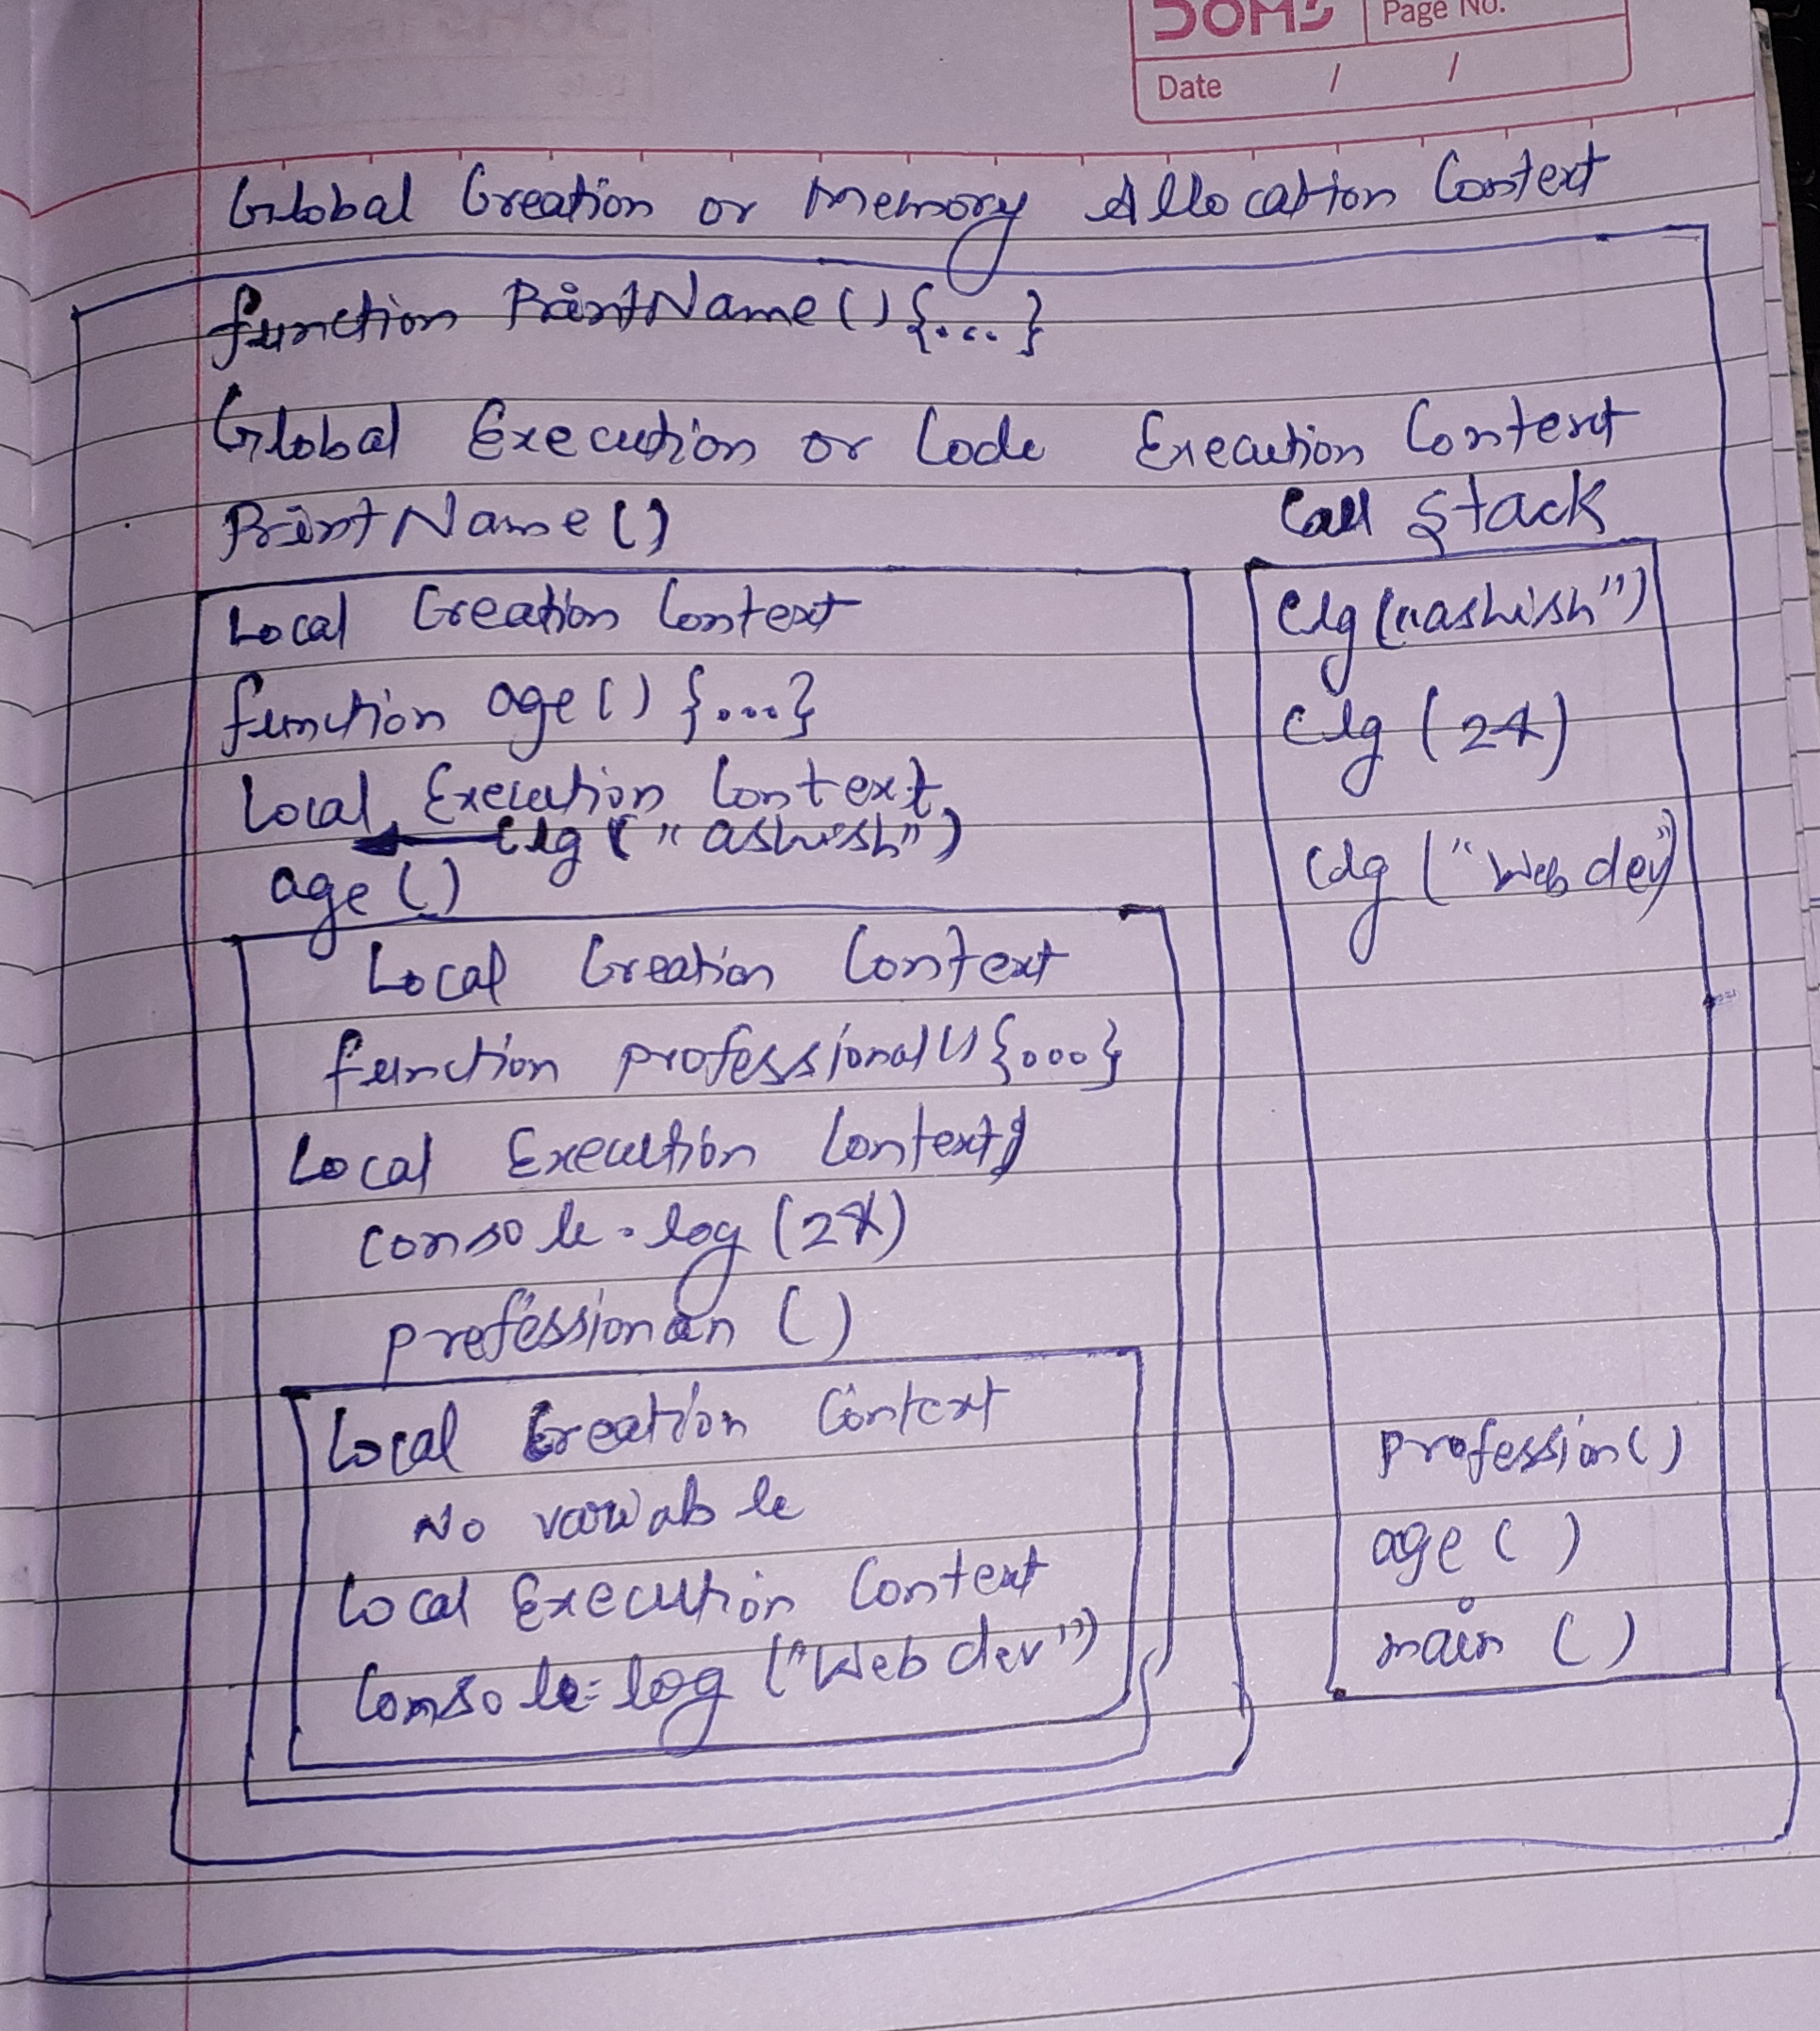 DOMS
Page No.
Date / /
Global Creation or Memory Allocation Context
function PrintName () {...}
Global Execution or Code Execution Context
PrintName ()
Local Creation Context
function age () {...}
Local Execution Context
clg ("ashish")
age ()
Local Creation Context
function professional () {...}
Local Execution Context
console.log (24)
professionan ()
Local Creation Context
No variable
Local Execution Context
Console.log ("Web dev")
Call Stack
Clg ("ashish")
Clg (24)
Clg ("Web dev")
profession()
age ()
main ()